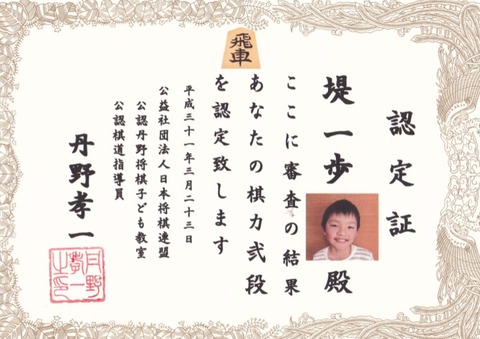 認定証
堤一歩殿
ここに審査の結果
あなたの棋力弐段
を認定致します
平成三十一年三月二十三日
公益社団法人日本将棋連盟
公認丹野将棋子ども教室
公認棋道指導員
丹野孝一
飛車